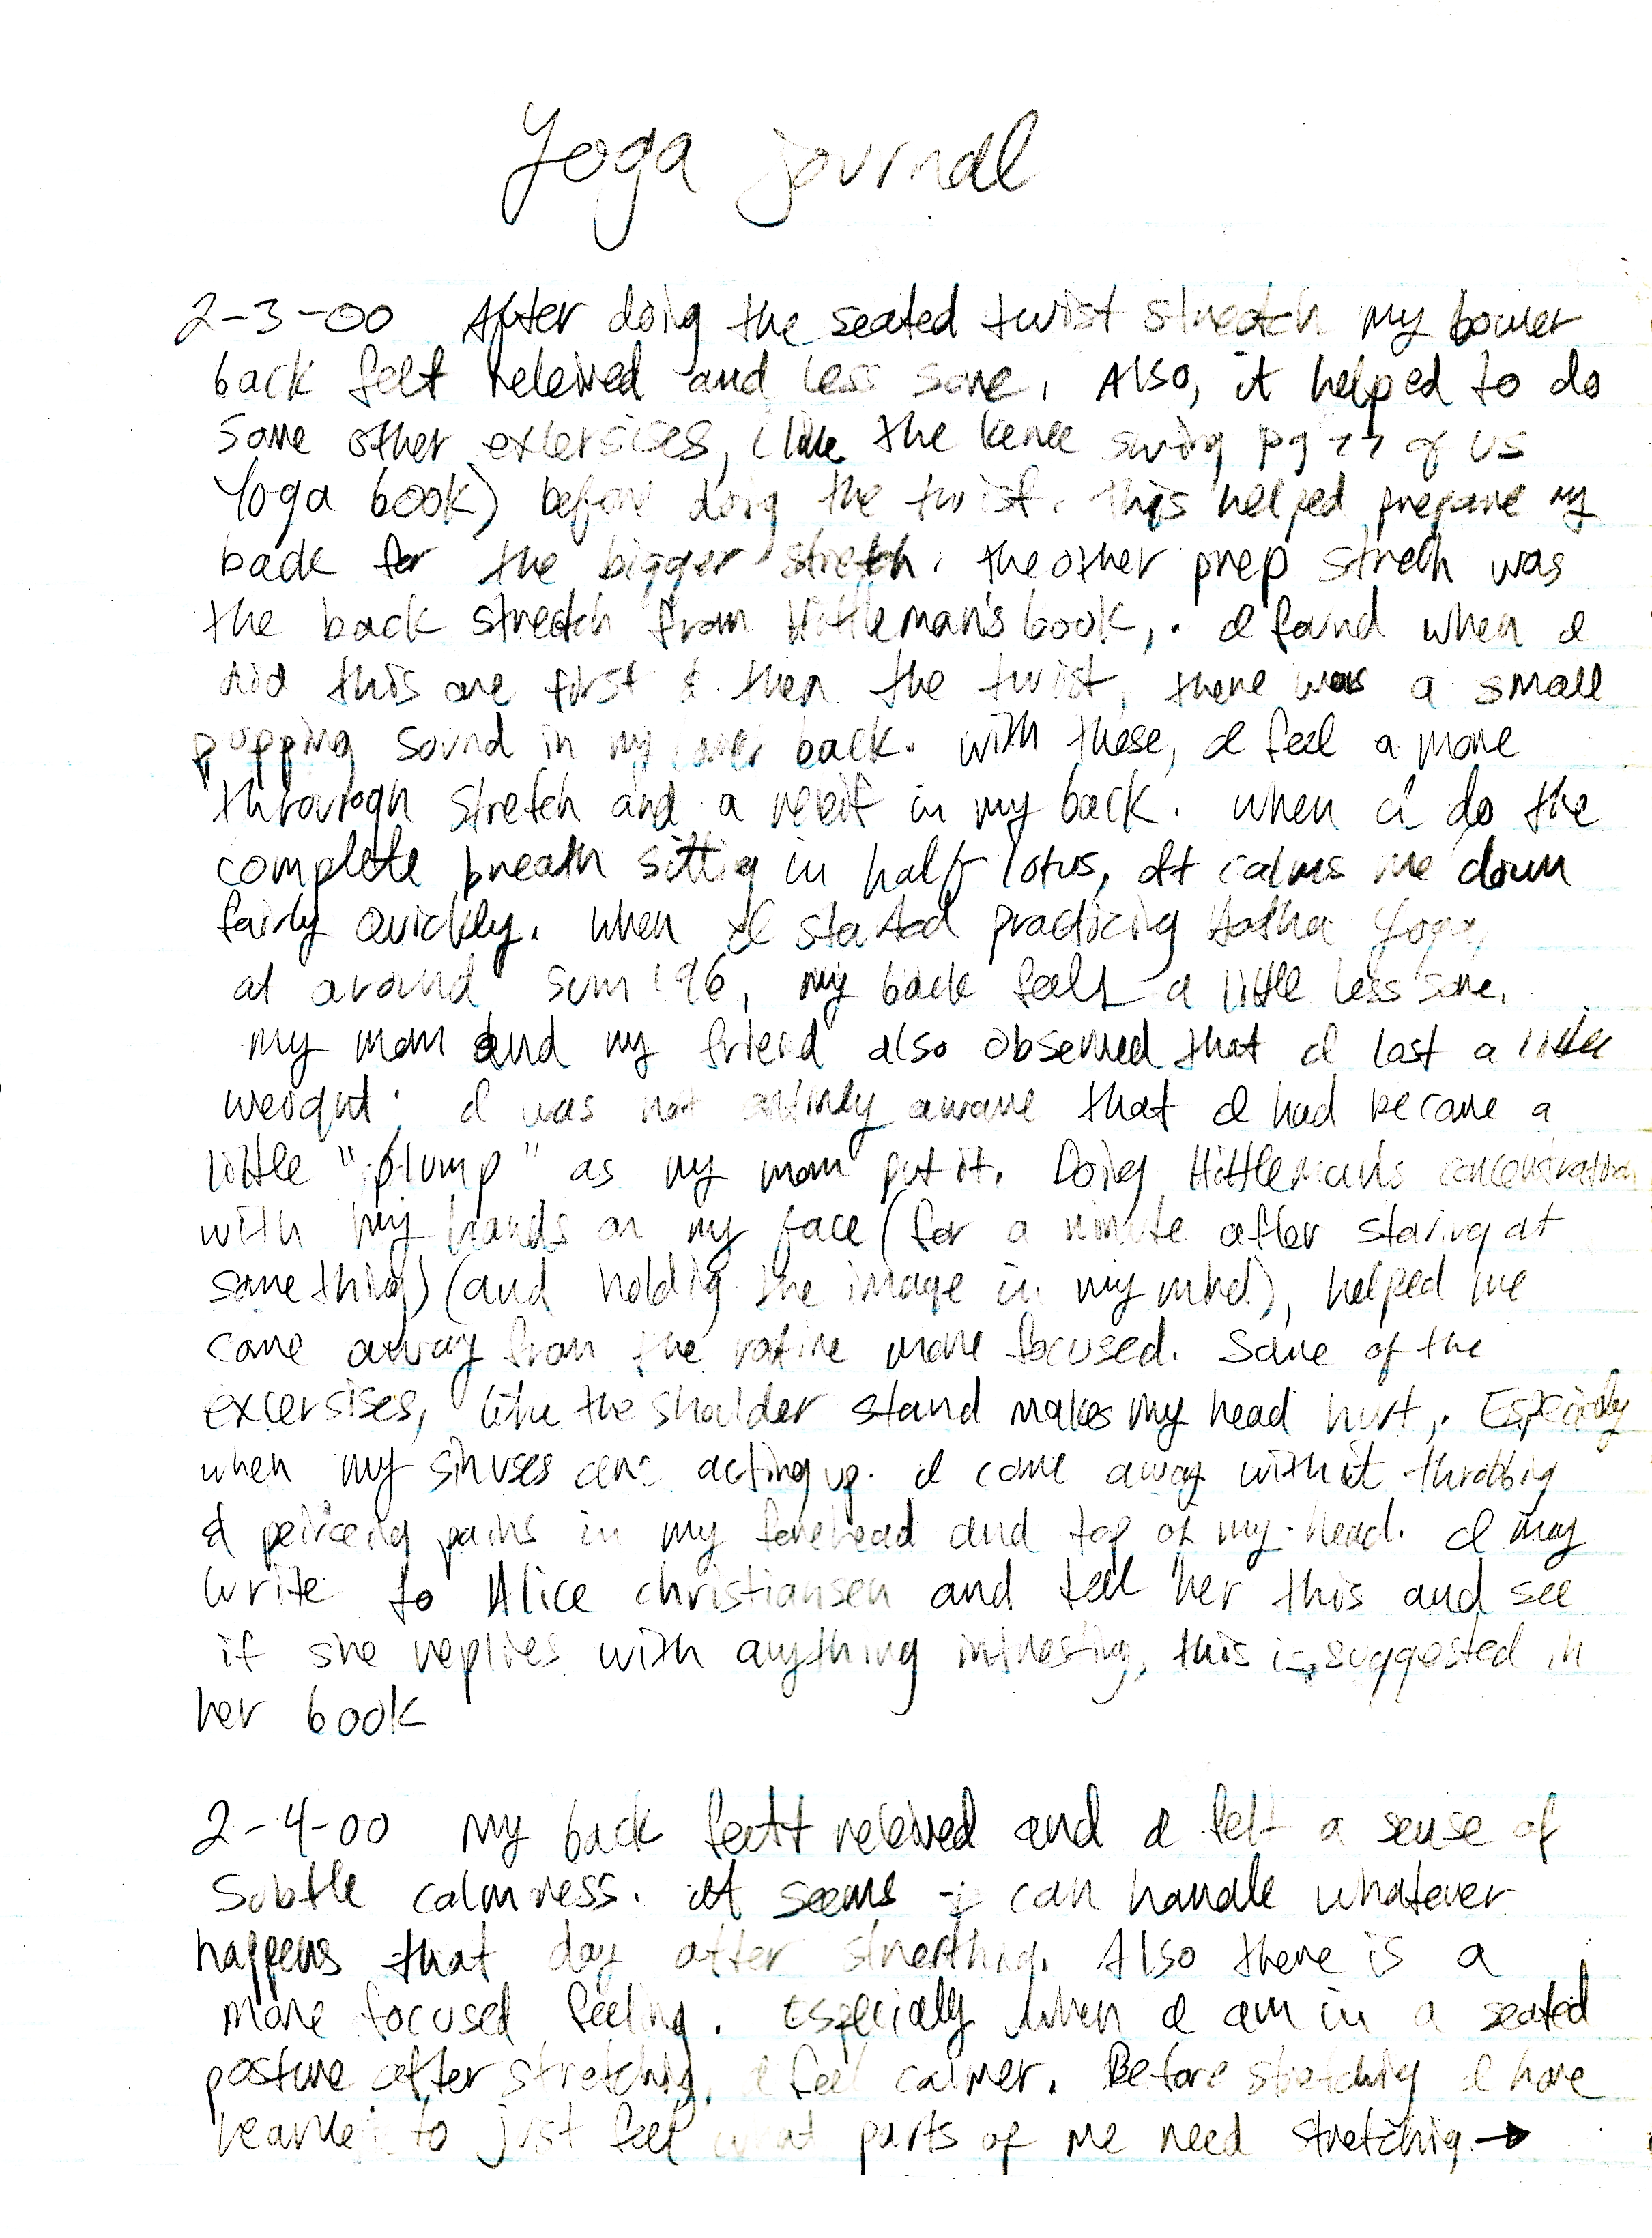 Yoga journal
2-3-00 After doing the seated twist stretch my lower
back felt releived and less sore. Also, it helped to do
some other excersises, (like the kenee swing pg of us
Yoga book) before doing the twist. this helped prepare my
back for the bigger stretch. the other prep streth was
the back stretch from Hittleman's book,. I found when I
did this one first & then the twist, there was a small
popping sound in my lower back. with these, I feel a more
through stretch and a releif in my back. when I do the
complete breath sittig in half lotus, It calms me down
fairly quickly. When I started practicing Hatha Yoga,
at around sum '96, my back feels a little less sore.
my mom and my friend also observed that I lost a little
weight. I was not entirely aware that I had became a
little "plump" as my mom put it. Doing Hittleman's concentration
with my hands on my face (for a minute after staring at
something) (and holdig the image in my mind), helped me
come away from the rotine more focused. Some of the
excersises, like the shoulder stand makes my head hurt,. Especialy
when my sinuses are acting up. I come away with it throbbig
& peirceing pains in my forehead and top of my head. I may
write to Alice christiansen and tell her this and see
if she replies with anything intresting, this is suggested in
her book
2-4-00 My back feelt releived and I felt a sense of
subtle calmness. It seems I can handle whatever
happens that day after strecthing. Also there is a
more focused feeling. Especialy when I am in a seated
posture after stretching, I feel calmer. Before stretchig I have
learned to just feel what parts of me need stretchig →